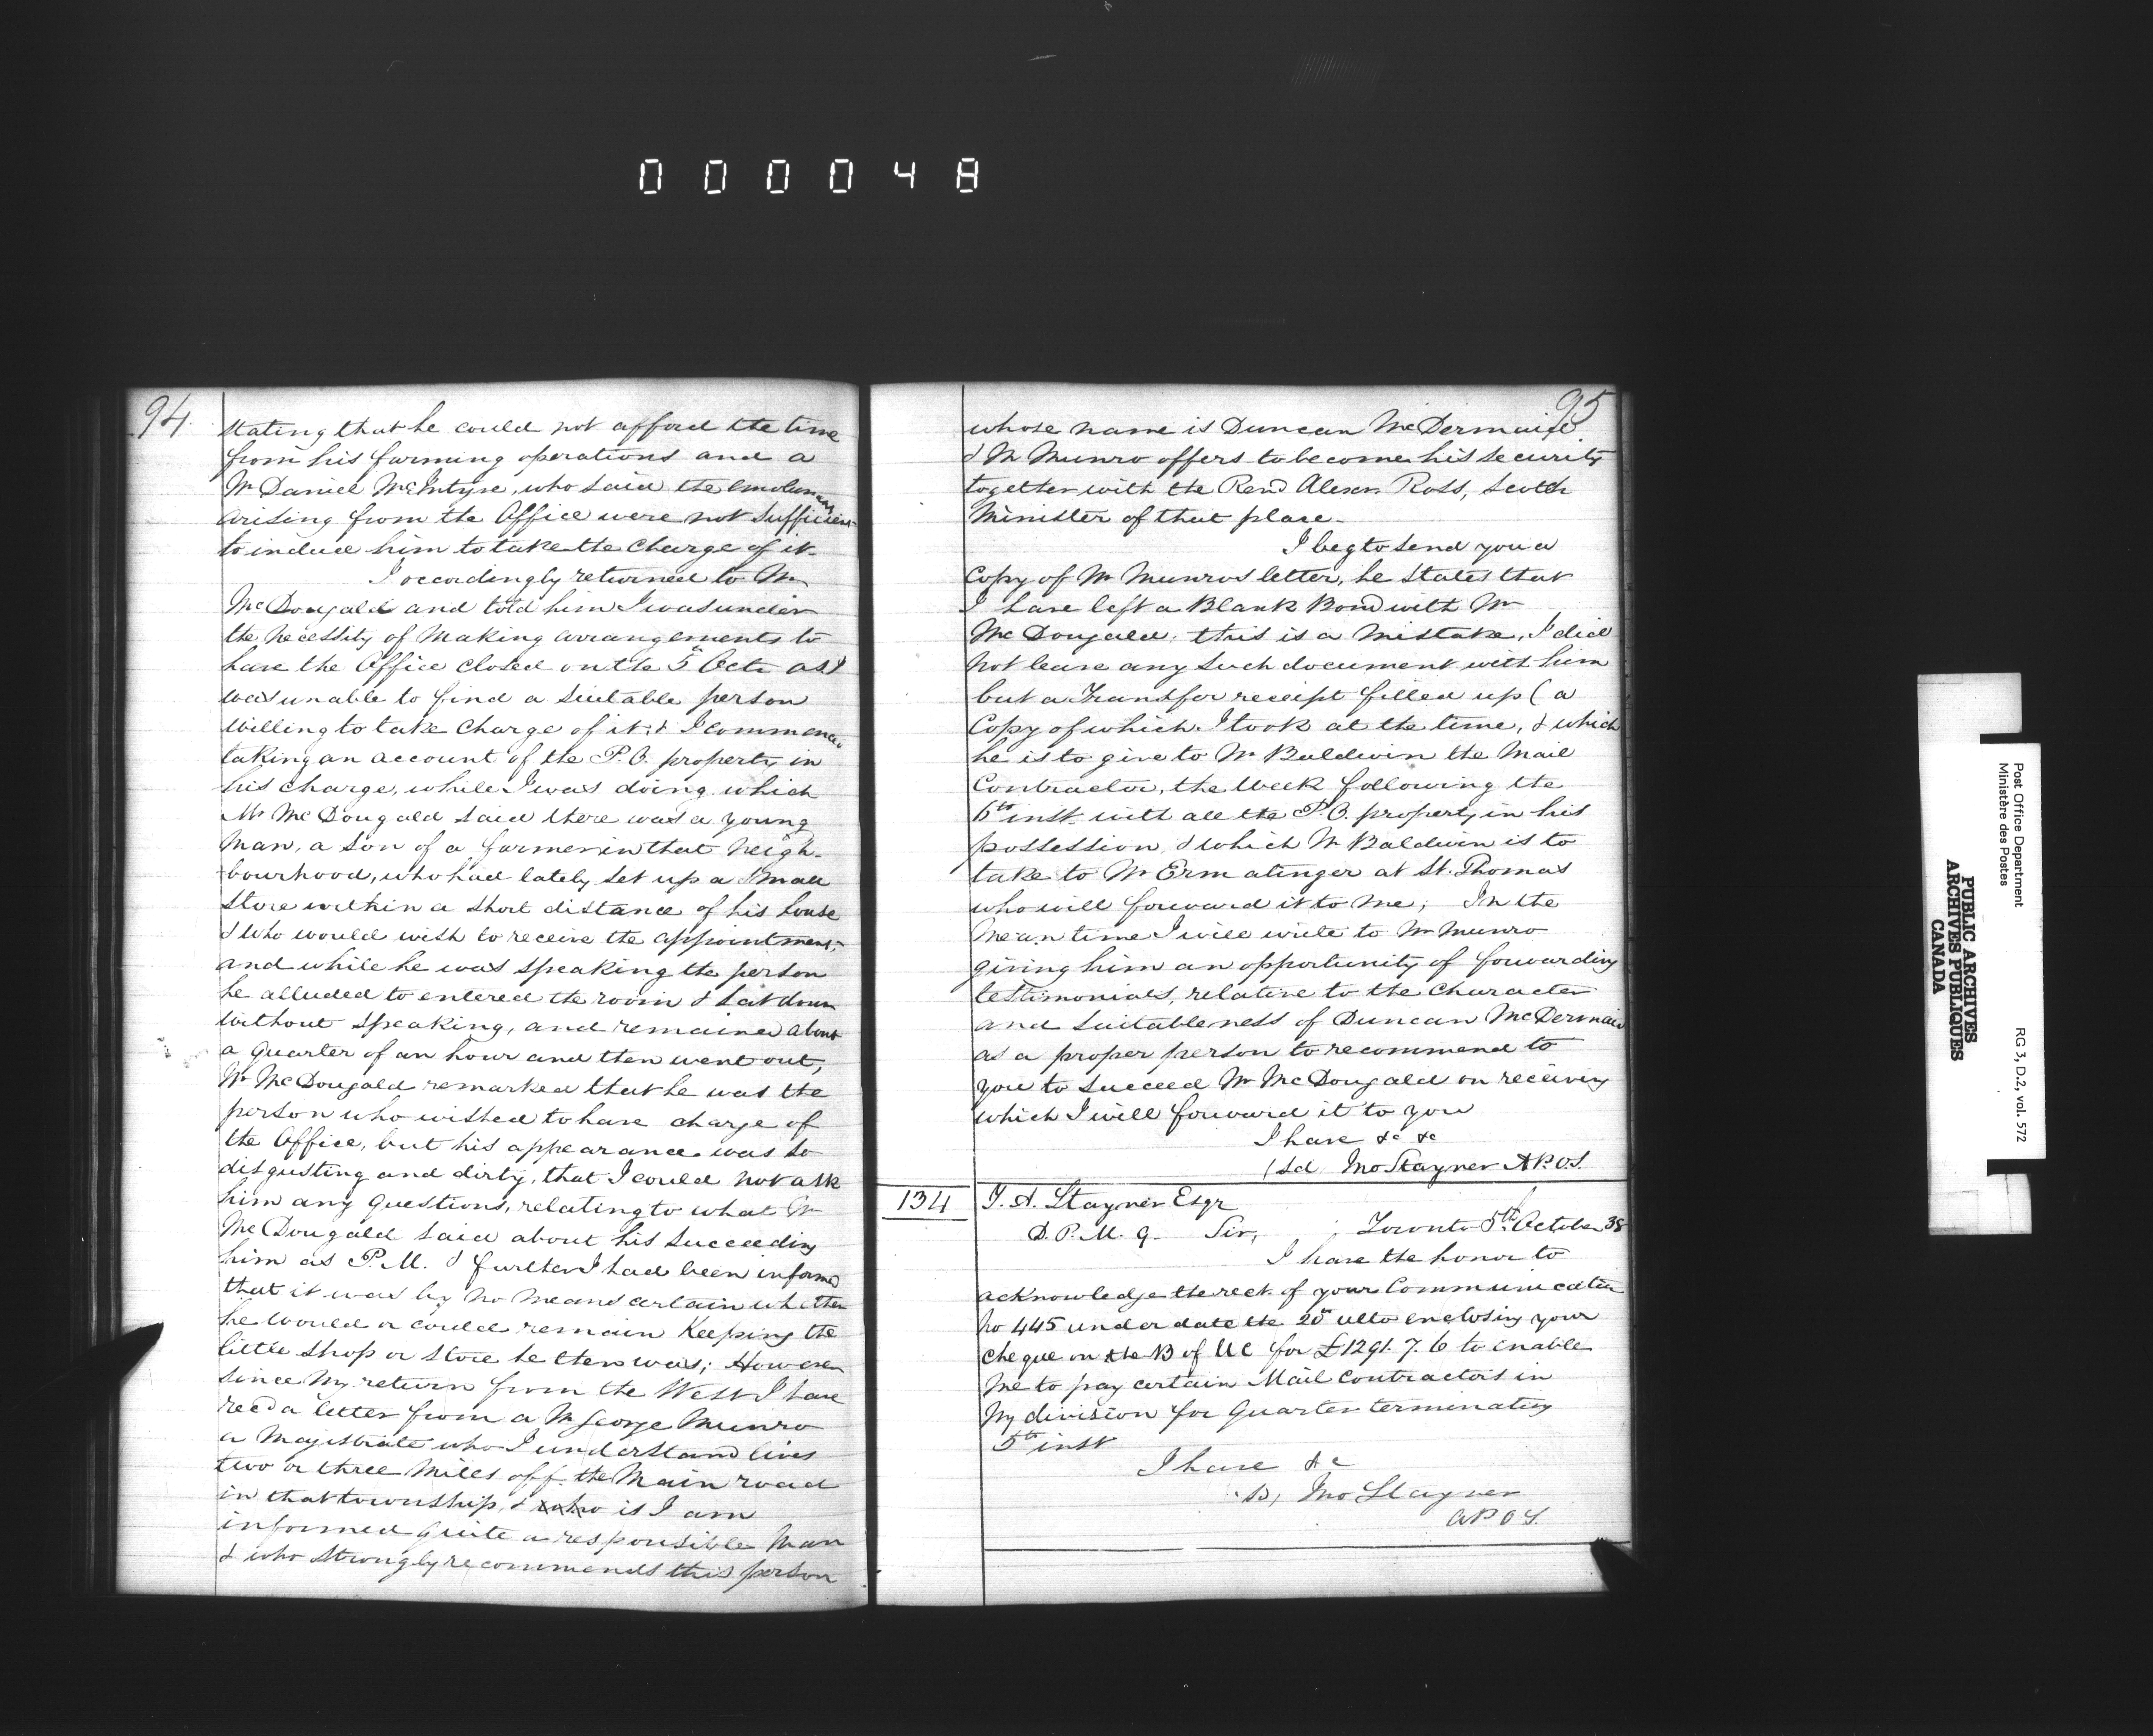 000048
94
stating that he could not afford the time
from his farming operations and a
Mr Daniel McIntyre, who said the emoluments
arising from the Office were not sufficient
to induce him to take the charge of it.
I accordingly returned to Mr
McDougald and told him I was under
the necessity of making arrangements to
have the Office closed on the 5th Octr as I
was unable to find a suitable person
willing to take charge of it; & I commenced
taking an account of the P.O. property in
his charge, while I was doing which
Mr McDougald said there was a young
man, a son of a farmer in that neigh-
bourhood, who had lately set up a small
store within a short distance of his house
& who would wish to receive the appointment;
and while he was speaking the person
he alluded to entered the room & sat down
without speaking, and remained about
a quarter of an hour and then went out,
Mr McDougald remarked that he was the
person who wished to have charge of
the Office, but his appearance was so
disgusting and dirty, that I could not ask
him any questions, relating to what Mr
McDougald said about his succeeding
him as P.M. & further I had been informed
that it was by no means certain whether
he would or could remain keeping the
little shop or store he then was; However
since my return from the West I have
recd a letter from a Mr George Munro
a Magistrate who I understand lives
two or three miles off the Main road
in that township, & who is I am
informed quite a responsible man
& who strongly recommends this person
95
whose name is Duncan McDermaid
& Mr Munro offers to become his security
together with the Revd Alexr. Ross, Scotch
Minister of that place.
I beg to send you a
Copy of Mr Munros letter, he states that
I have left a Blank Bond with Mr
McDougald; this is a mistake, I did
not leave any such document with him
but a Transfer receipt filled up (a
Copy of which I took at the time, & which
he is to give to Mr Baldwin the Mail
Contractor, the week following the
6th inst. with all the P.O. property in his
possession, & which Mr Baldwin is to
take to Mr Ermatinger at St. Thomas
who will forward it to me; In the
mean time I will write to Mr Munro
giving him an opportunity of forwarding
testimonials, relative to the character
and suitableness of Duncan McDermaid
as a proper person to recommend to
you to succeed Mr McDougald on receiving
which I will forward it to you
I have &c &c
(sd Jno Stayner A.P.O.S.
134
T. A. Stayner Esqr
D. P. M. G. Sir, Toronto 5th October 38
I have the honor to
acknowledge the rect. of your Communication
No 445 under date the 20th ulto enclosing your
cheque on the B of UC for £1291. 7. 6 to enable
me to pay certain Mail Contractors in
my division for Quarter terminating
5th inst
I have &c
sd, Jno Stayner
APOS.
Post Office Department
Ministère des Postes
RG 3, D.2, vol. 572
PUBLIC ARCHIVES
ARCHIVES PUBLIQUES
CANADA